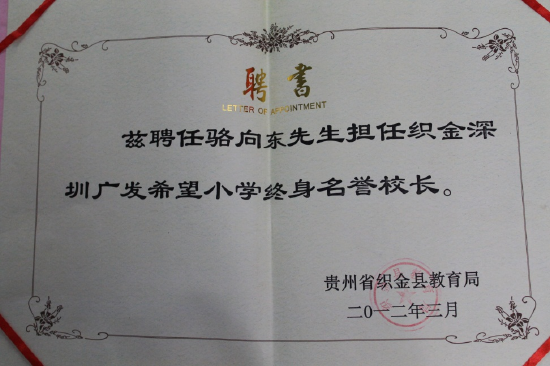 聘书
LETTER OF APPOINTMENT
兹聘任骆向东先生担任织金深
圳广发希望小学终身名誉校长。
贵州省织金县教育局
二〇一二年三月